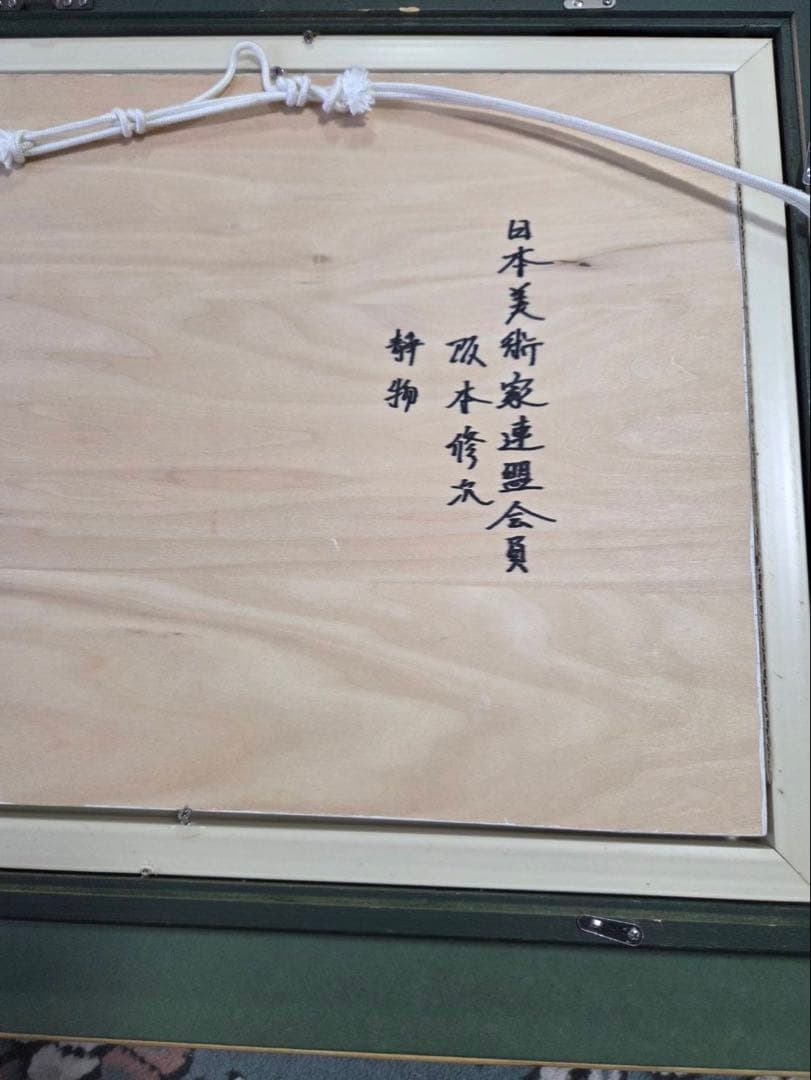 日本美術家連盟会員
阪本修次
静物